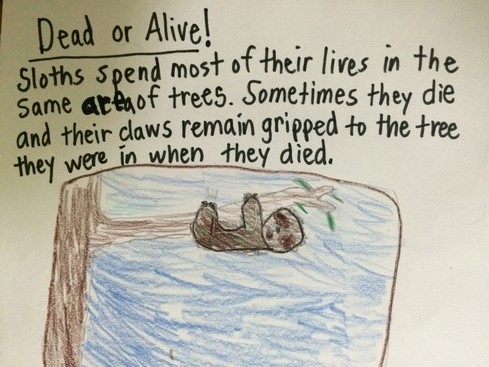 Dead or Alive!
Sloths spend most of their lives in the
same area of trees. Sometimes they die
and their claws remain gripped to the tree
they were in when they died.